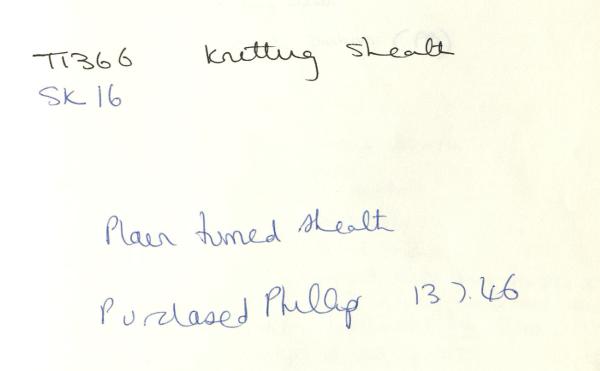 TI366 Knitting Sheath
SK 16
Plain turned sheath
Purchased Phillip 13 7.46